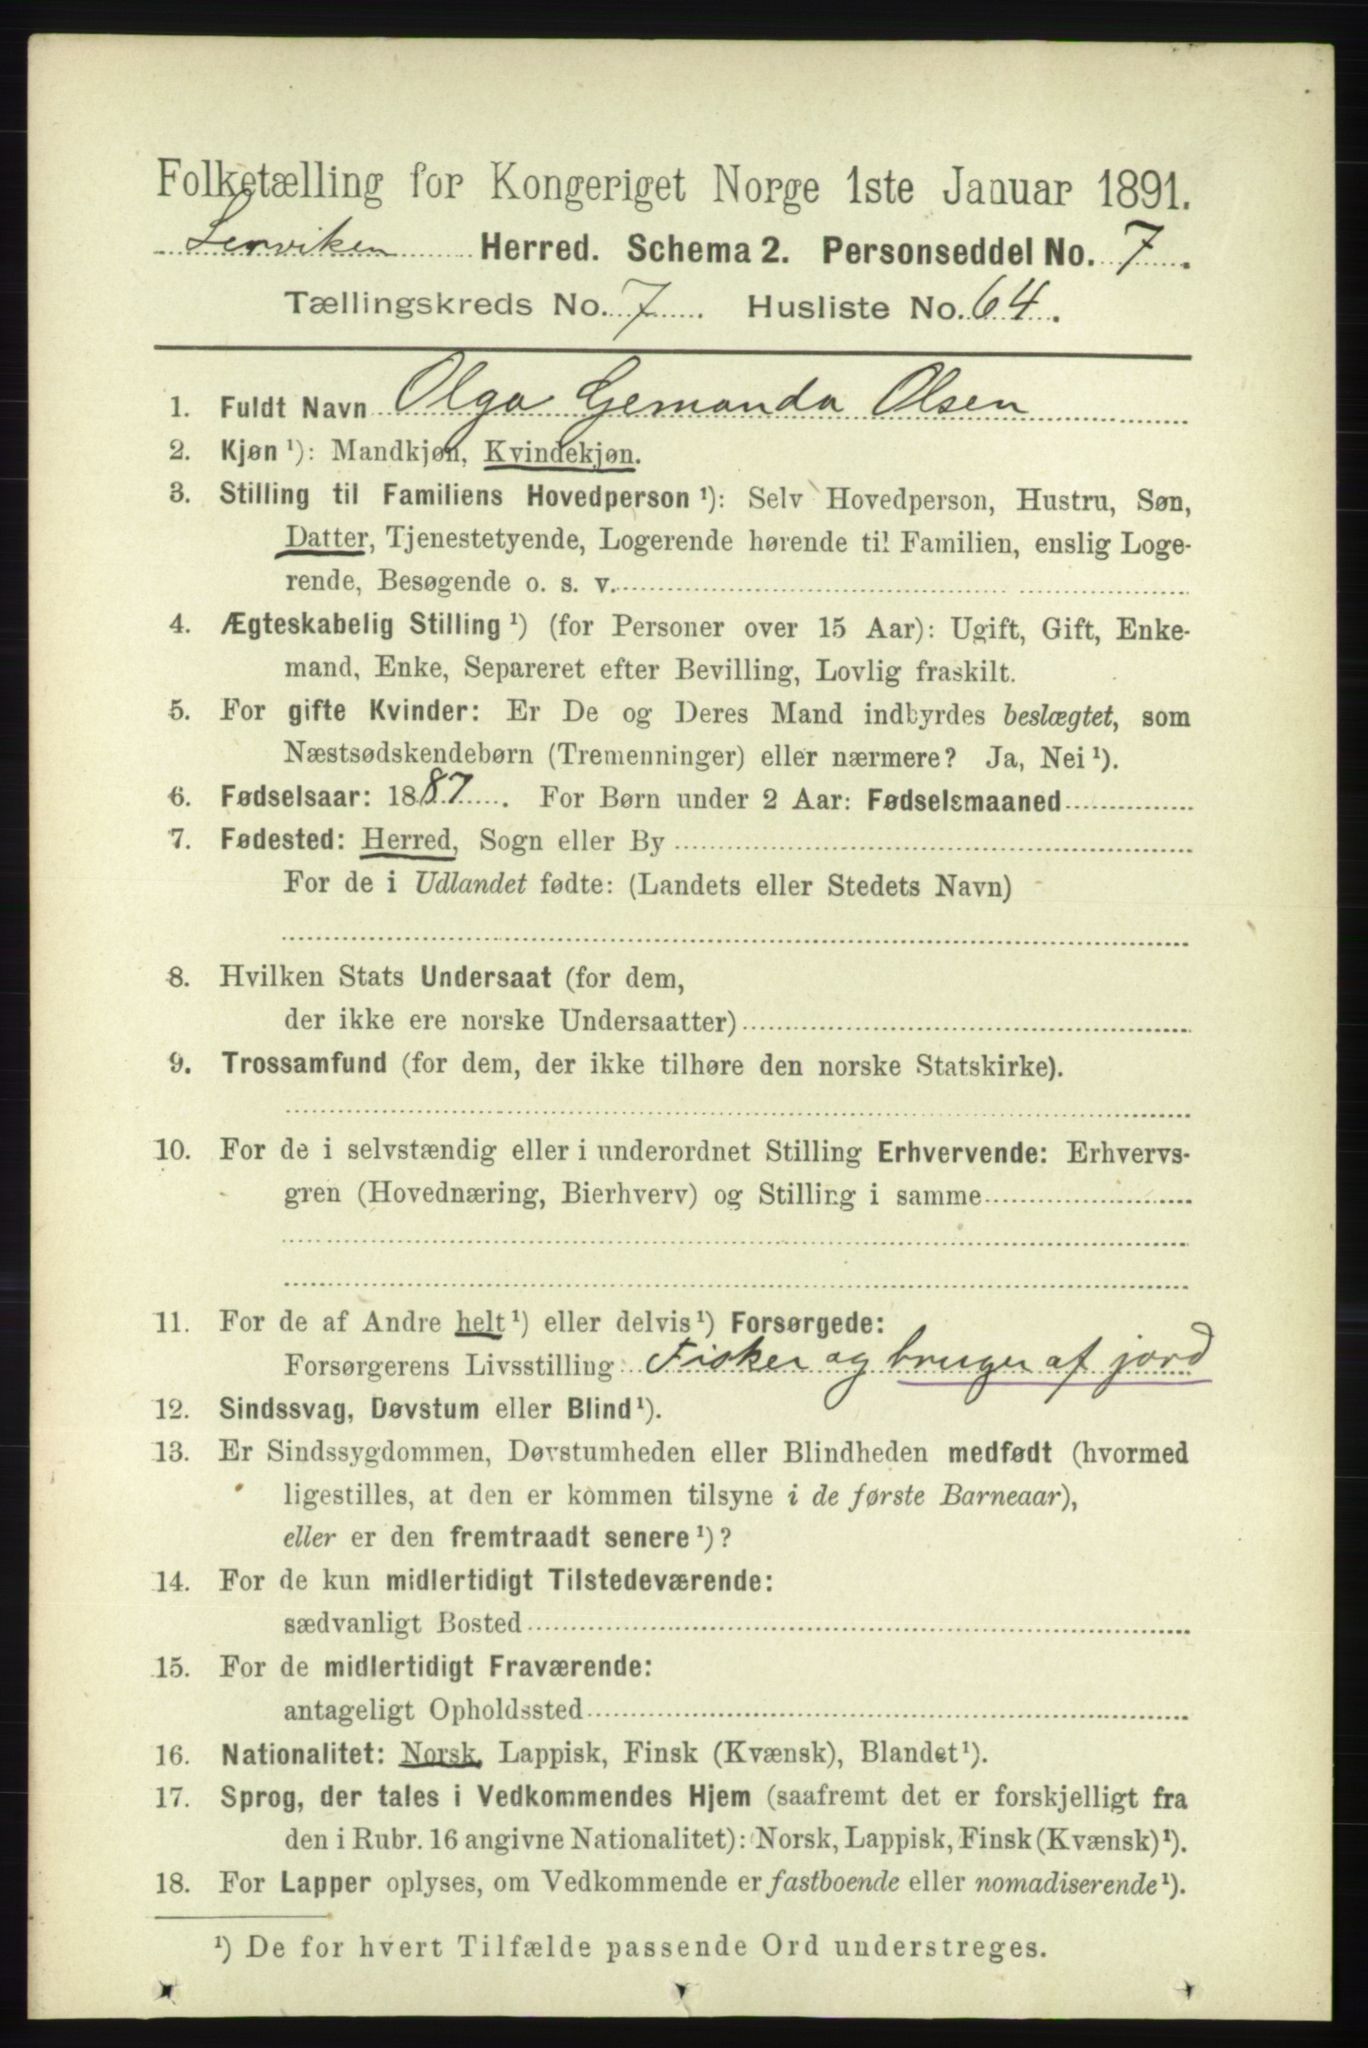 Folketælling for Kongeriget Norge 1ste Januar 1891.
Lenviken Herred. Schema 2. Personseddel No. 7.
Tællingskreds No. 7. Husliste No. 64.
1. Fuldt Navn Olga Gemanda Olsen
2. Kjøn ¹): Mandkjøn, Kvindekjøn.
3. Stilling til Familiens Hovedperson ¹): Selv Hovedperson, Hustru, Søn,
Datter, Tjenestetyende, Logerende hørende til Familien, enslig Loge-
rende, Besøgende o. s. v.
4. Ægteskabelig Stilling ¹) (for Personer over 15 Aar): Ugift, Gift, Enke-
mand, Enke, Separeret efter Bevilling, Lovlig fraskilt.
5. For gifte Kvinder: Er De og Deres Mand indbyrdes beslægtet, som
Næstsødskendebørn (Tremenninger) eller nærmere? Ja, Nei ¹).
6. Fødselsaar: 1887. For Børn under 2 Aar: Fødselsmaaned
7. Fødested: Herred, Sogn eller By
For de i Udlandet fødte: (Landets eller Stedets Navn)
8. Hvilken Stats Undersaat (for dem,
der ikke ere norske Undersaatter)
9. Trossamfund (for dem, der ikke tilhøre den norske Statskirke).
10. For de i selvstændig eller i underordnet Stilling Erhvervende: Erhvervs-
gren (Hovednæring, Bierhverv) og Stilling i samme
11. For de af Andre helt ¹) eller delvis ¹) Forsørgede:
Forsørgerens Livsstilling Fisker og bruger af jord
12. Sindssvag, Døvstum eller Blind ¹).
13. Er Sindssygdommen, Døvstumheden eller Blindheden medfødt (hvormed
ligestilles, at den er kommen tilsyne i de første Barneaar),
eller er den fremtraadt senere ¹)?
14. For de kun midlertidigt Tilstedeværende:
sædvanligt Bosted
15. For de midlertidigt Fraværende:
antageligt Opholdssted
16. Nationalitet: Norsk, Lappisk, Finsk (Kvænsk), Blandet ¹).
17. Sprog, der tales i Vedkommendes Hjem (saafremt det er forskjelligt fra
den i Rubr. 16 angivne Nationalitet): Norsk, Lappisk, Finsk (Kvænsk) ¹).
18. For Lapper oplyses, om Vedkommende er fastboende eller nomadiserende ¹).
¹) De for hvert Tilfælde passende Ord understreges.